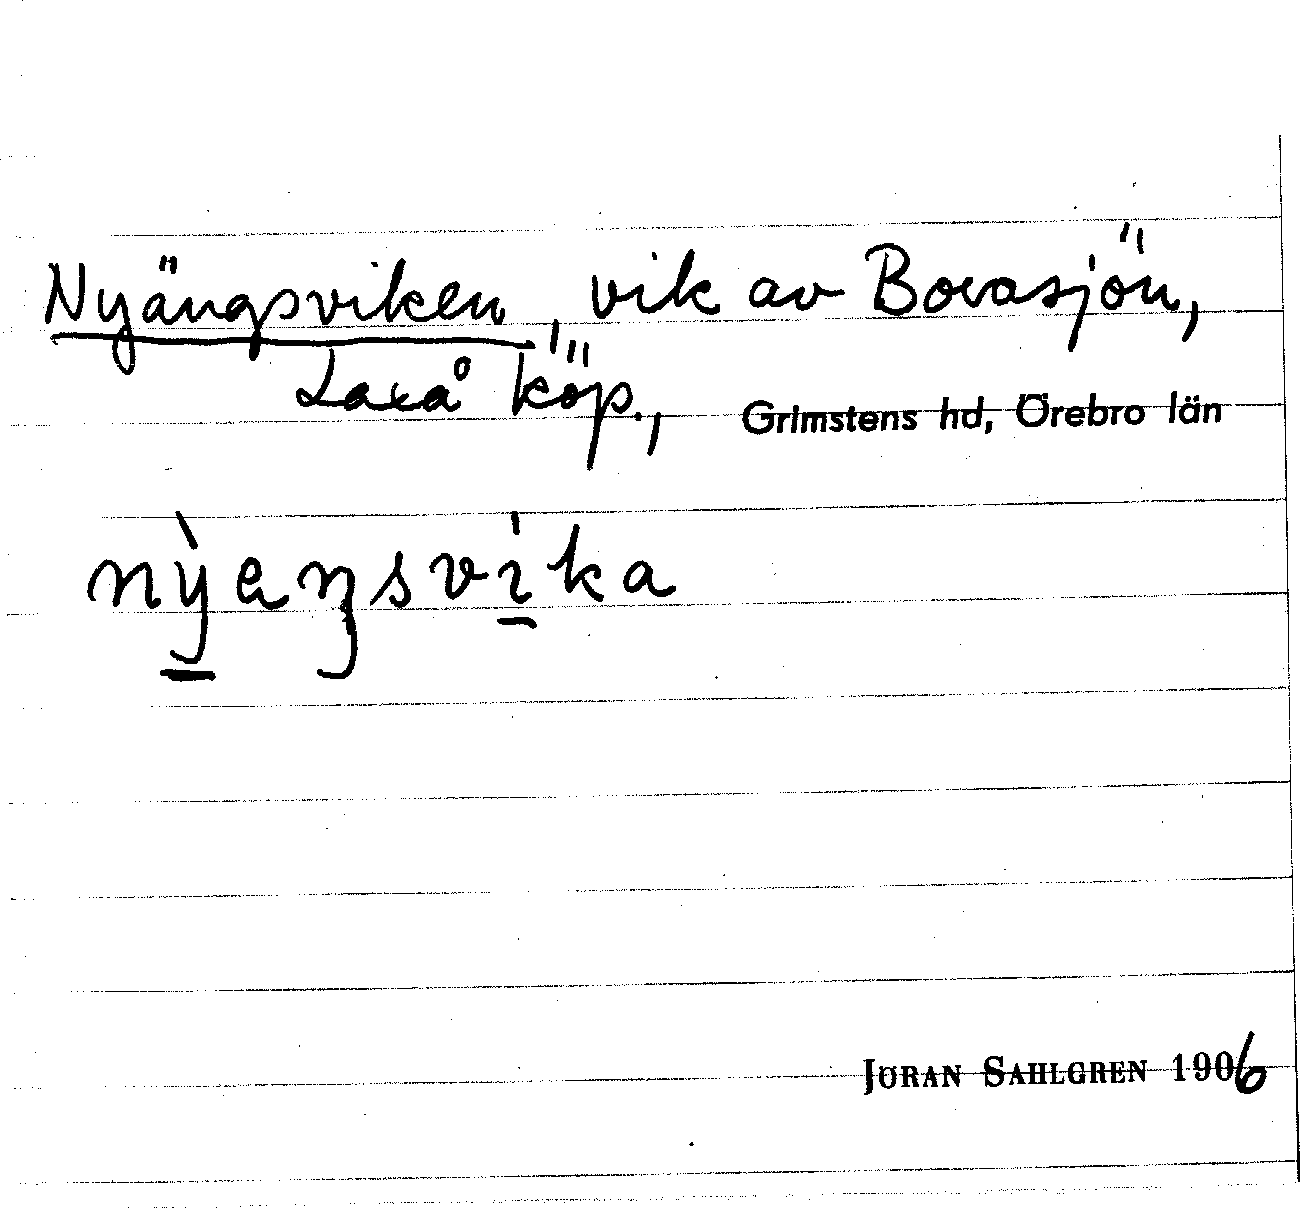 Nyängsviken, vik av Bovasjön,
Laxå köp., Grimstens hd, Örebro län
nỳ̲eŋsvi̲̍ka
JÖRAN SAHLGREN 1906